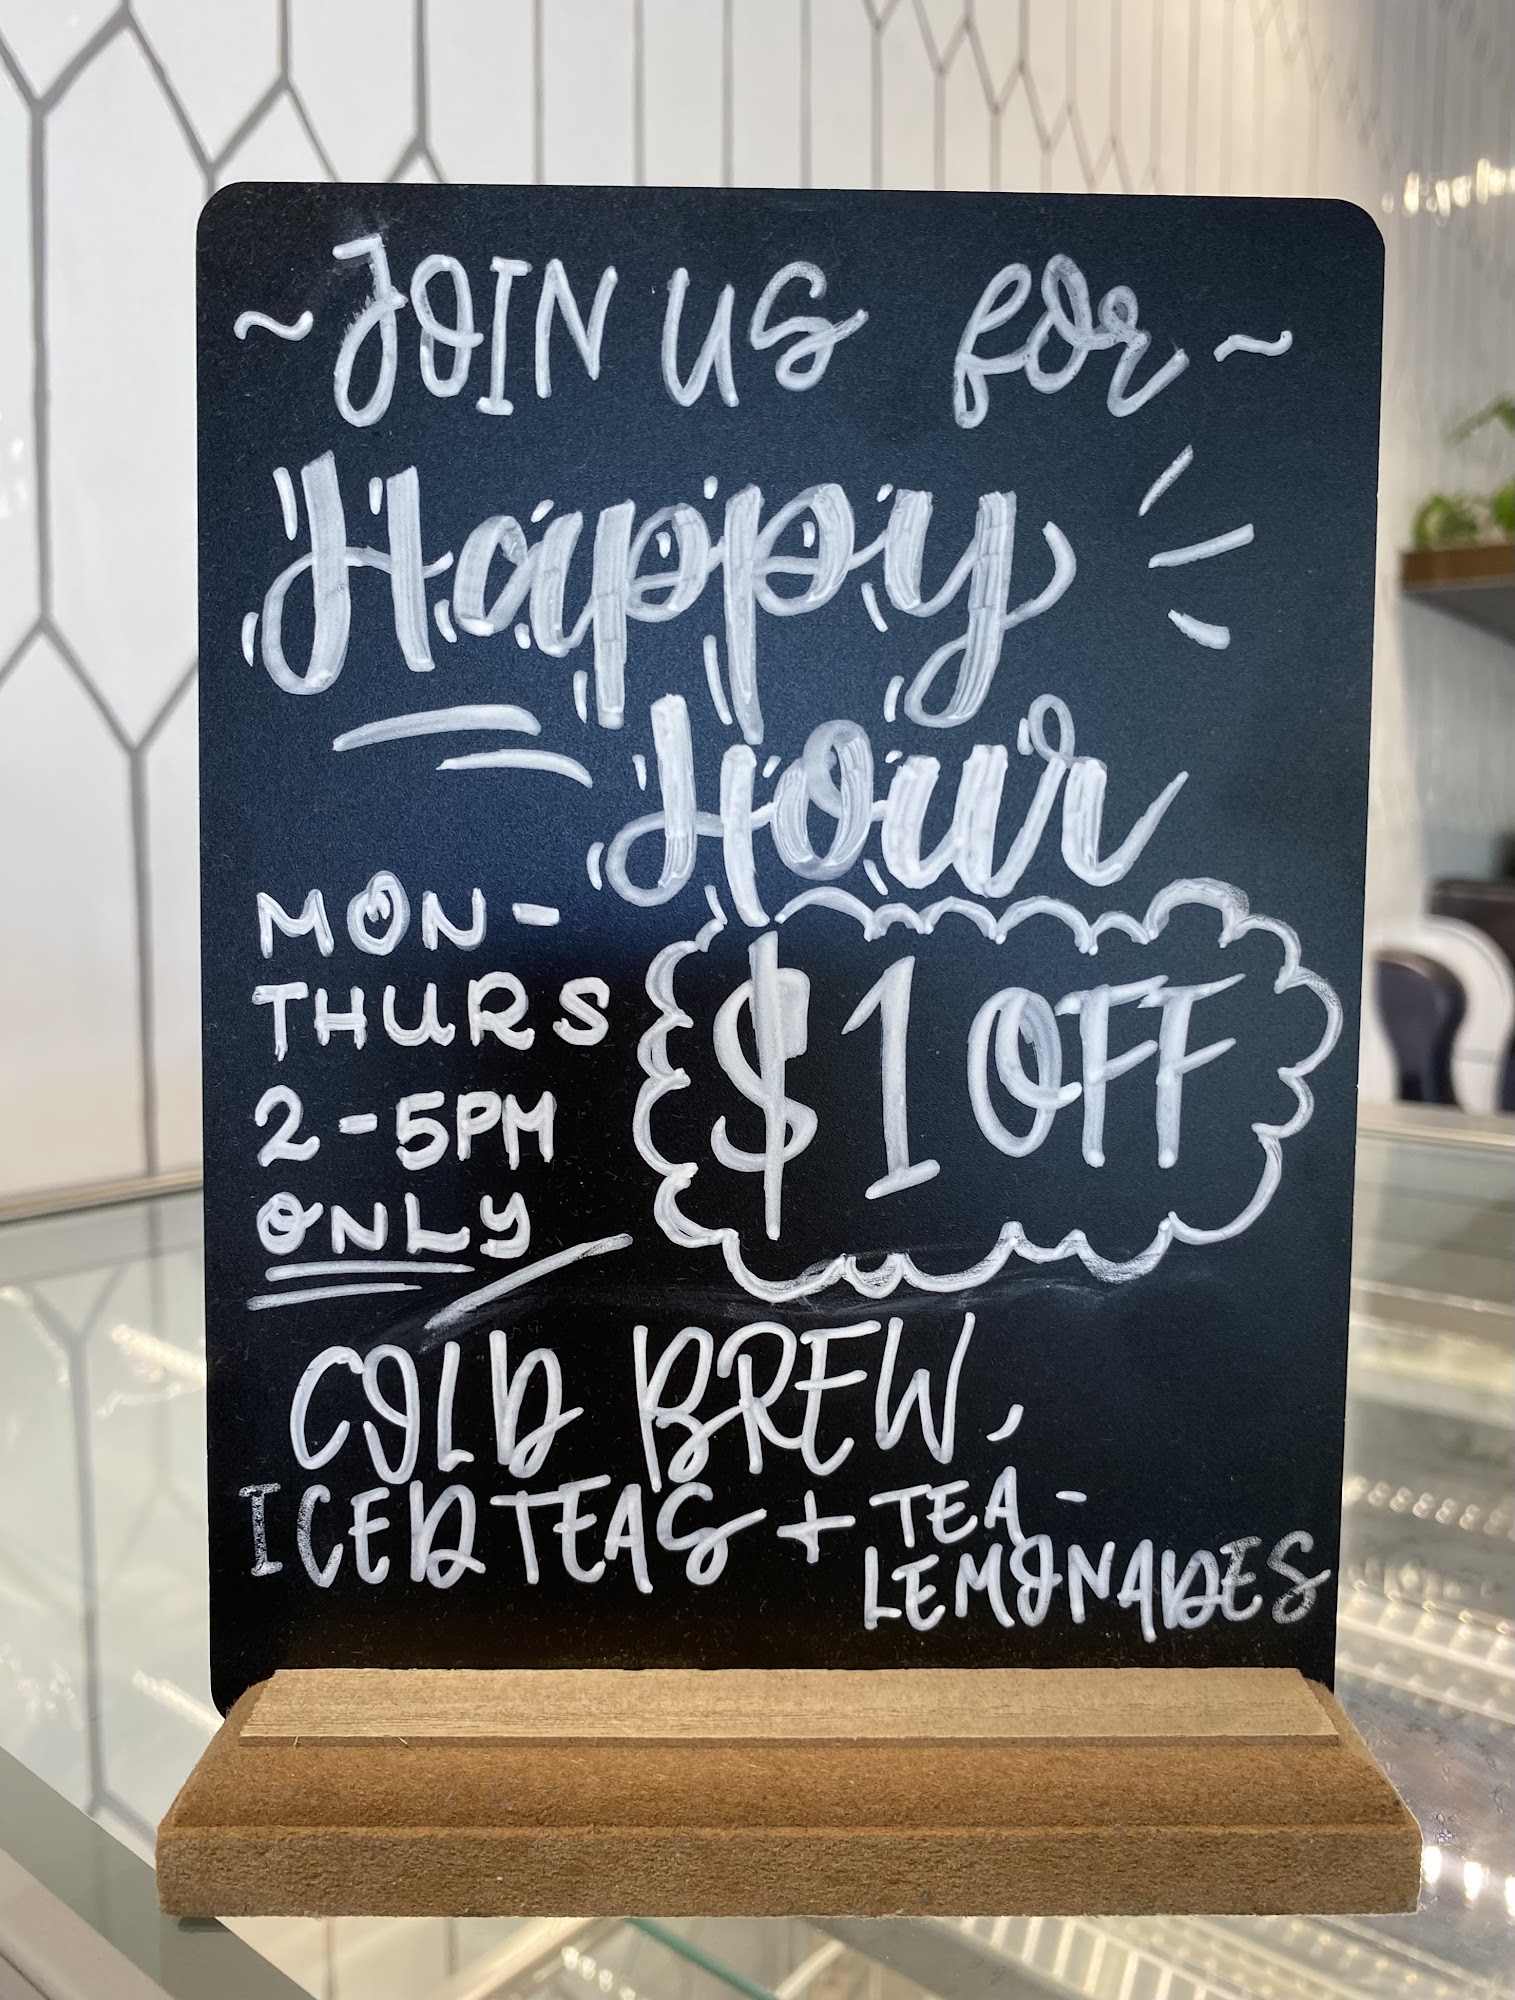 ~ JOIN US for ~
Happy
Hour
MON -
THURS
2 - 5PM
ONLY
$1 OFF
COLD BREW,
ICED TEAS + TEA -
LEMONADES